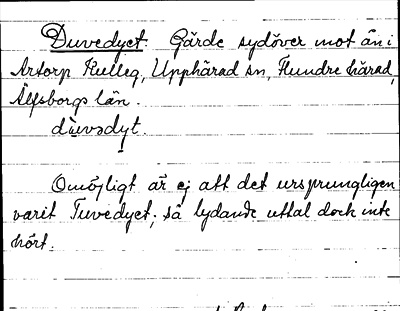 Duvedyet. Gärde sydöver mot ån i
Artorp Kulleg, Upphärad sn, Flundre härad,
Älfsborgs län.
dùvsdyt.
Omöjligt är ej att det ursprungligen
varit Tuvedyet; så lydande uttal dock inte
hört.